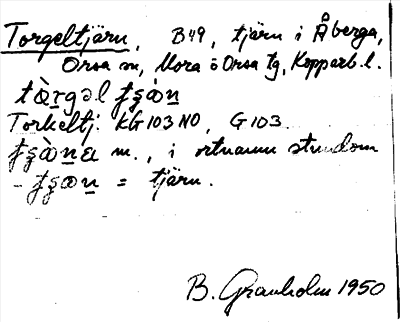 Torgeltjärn, B49, tjärn i Åberga,
Orsa sn, Mora o Orsa tg, Kopparb. l.
Torkeltj. KG 103 NO, G 103
m., i ortnamn stundom
= tjärn.
B. Granholm 1950